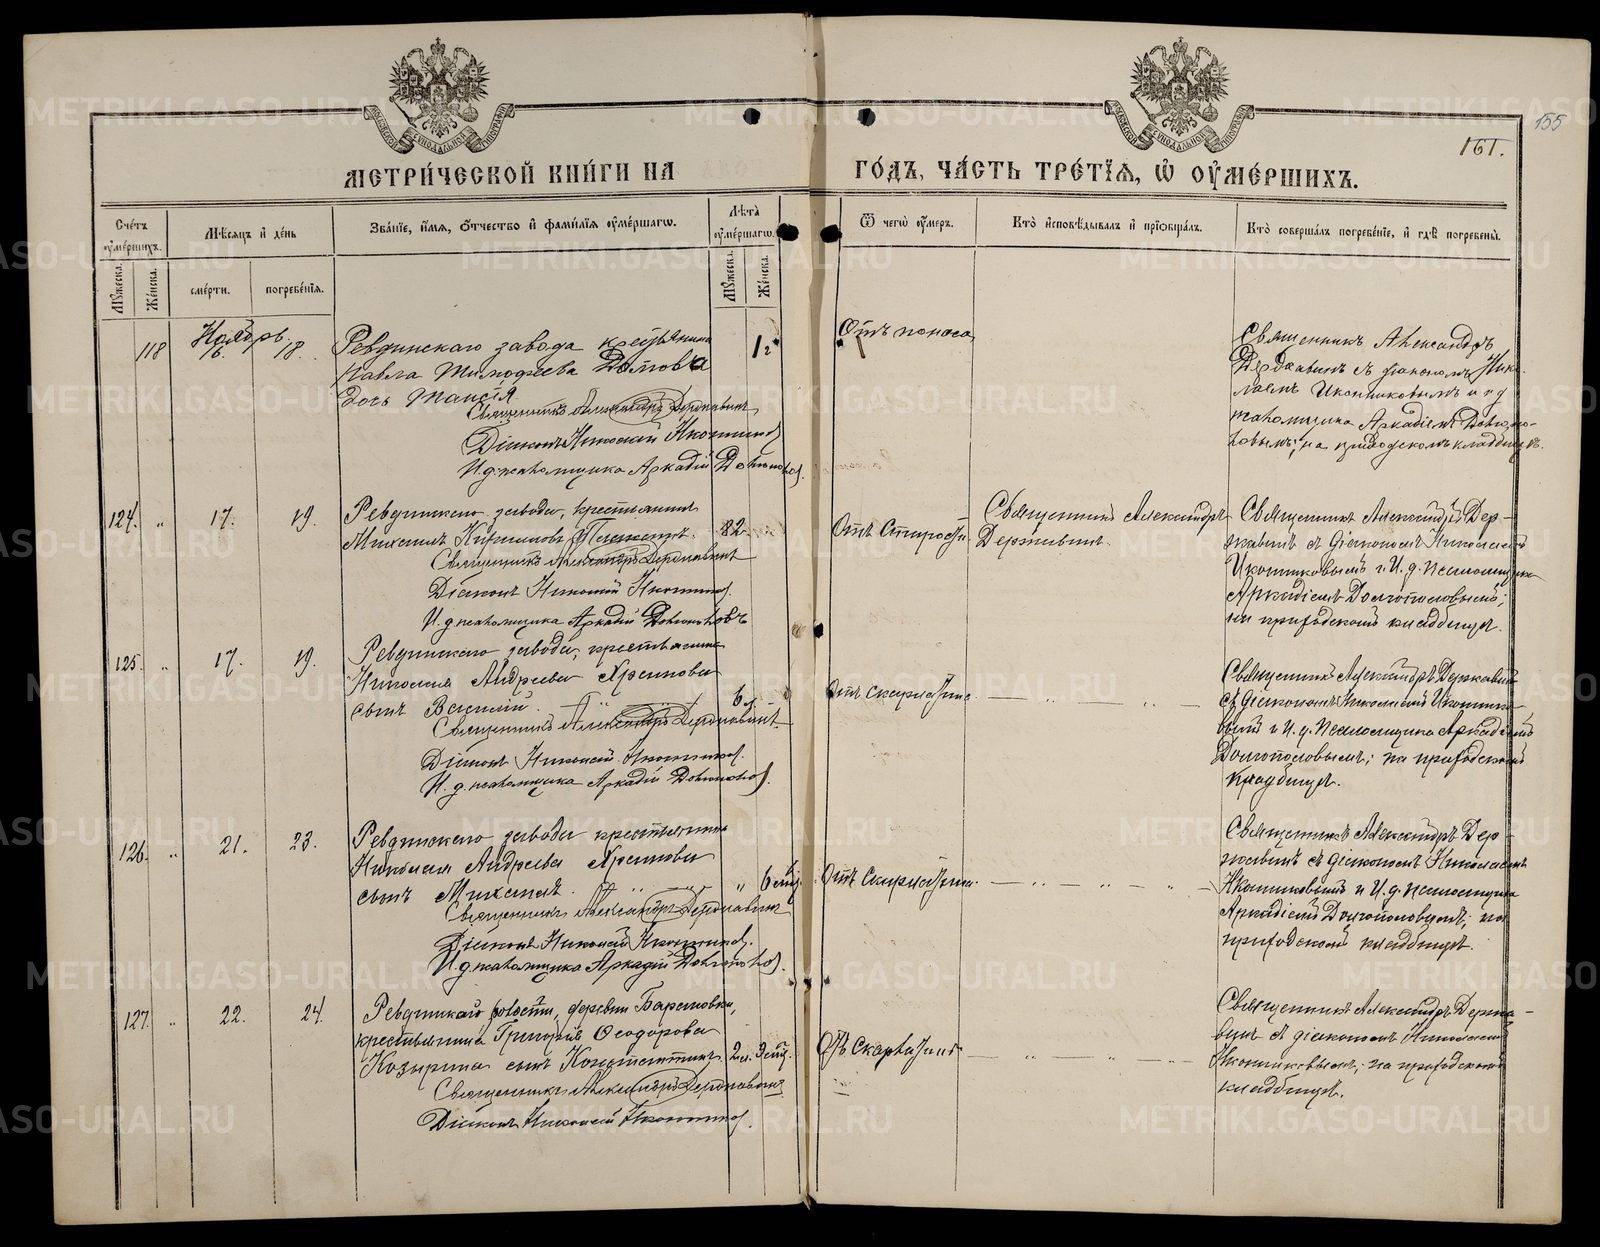 155
161.
МЕТРИ́ЧЕСКОЙ КНИ́ГИ НА ГО́ДЪ, ЧА́СТЬ ТРЕ́ТЇѦ, Ѽ ОУ҆МЕ́РШИХЪ.
Сче́тъ оу҆ме́ршихъ.
Мꙋ́жеска.
Же́нска.
Мѣ́сѧцъ и҆ де́нь
сме́рти.
погребе́нїѧ.
Зва́нїе, и҆́мѧ, ѻ҆́тчество и҆ фами́лїѧ оу҆ме́ршагѡ.
Лѣ́та оу҆ме́ршагѡ.
Мꙋ́жеска.
Же́нска.
Ѿ чегѡ̀ оу҆́меръ.
Кто̀ и҆сповѣ́дывалъ и҆ прїѡбща́лъ.
Кто̀ соверша́лъ погребе́нїе, и҆ гдѣ̀ погребены̀.
118
Ноябрь.
16. 18.
Ревдинскаго завода крестьянина
Павла Тимофеева
дочь Таисія
Священникъ Александръ Державинъ
Діаконъ Николай Иконниковъ
И. д. псаломщика Аркадій Долгополовъ.
Отъ поноса
Священникъ Александръ
Державинъ съ діакономъ Нико-
лаемъ Иконниковымъ и и. д.
псаломщика Аркадіемъ Долгопо-
ловымъ; на приходскомъ кладбищѣ.
124. „ 17. 19.
Ревдинскаго завода, крестьянинъ
Михаилъ
82.
Священникъ Александръ Державинъ
Діаконъ Николай Иконниковъ.
И. д. псаломщика Аркадій Долгополовъ
Отъ старости
Священникъ Александръ
Державинъ.
Священникъ Александръ Дер-
жавинъ съ діакономъ Николаемъ
Иконниковымъ и И. д. псаломщика
Аркадіемъ Долгополовымъ;
на приходскомъ кладбищѣ.
125. „ 17. 19.
Ревдинскаго завода, крестьянина
Николая Андреева Храмкова
сынъ Василій.
6 л.
Священникъ Александръ Державинъ
Діаконъ Николай Иконниковъ.
И. д. псаломщика Аркадій Долгополовъ.
Отъ скарлатины.
Священникъ Александръ Державинъ
съ діакономъ Николаемъ Иконнико-
вымъ и И. д. псаломщика Аркадіемъ
Долгополовымъ; на приходскомъ
кладбищѣ.
126. „ 21. 23.
Ревдинскаго завода крестьянина
Николая Андреева Храмкова
сынъ Михаилъ.
„ 6 мѣс.
Священникъ Александръ Державинъ
Діаконъ Николай Иконниковъ.
И. д. псаломщика Аркадій Долгополовъ.
Отъ скарлатины.
Священникъ Александръ Дер-
жавинъ съ діакономъ Николаемъ
Иконниковымъ и И. д. псаломщика
Аркадіемъ Долгополовымъ; на
приходскомъ кладбищѣ.
127. „ 22. 24.
Ревдинской волости, деревни Барановки,
крестьянина Григорія Ѳеодорова
Козырина сынъ Константинъ.
2 г. 3 мѣс.
Священникъ Александръ Державинъ
Діаконъ Николай Иконниковъ.
Отъ скарлатины
Священникъ Александръ Держа-
винъ съ діакономъ Николаемъ
Иконниковымъ; на приходскомъ
кладбищѣ.
METRIKI.GASO-URAL.RU